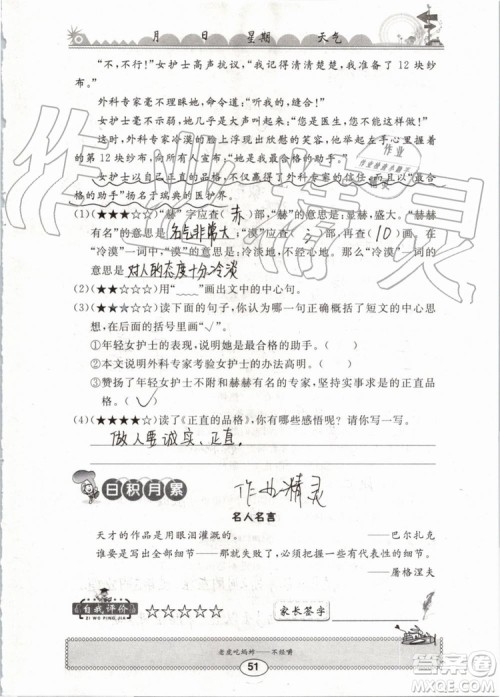 月 日 星期 天气
“不,不行!”女护士高声抗议,“我记得清清楚楚,我准备了 12 块纱
布。”
外科专家毫不理睬她,命令道:“听我的,缝合!”
女护士毫不示弱,她几乎大声叫起来:“您是医生,您不能这样做!”
这时,外科专家冷漠的脸上浮现出欣慰的笑容,他举起左手心里握着
的第 12 块纱布,向所有人宣布:“她是我最合格的助手。”
女护士以外科专家
合格的助手”扬名于瑞典的医护界。
(1)(★★★☆☆)“赫”字应查( 赤 )部,“赫”的意思是:显赫,盛大。“赫赫
有名”的意思是( 名气非常大 );“漠”应查( 氵 )部,再查( 10 )画。在
“冷漠”一词中,“漠”的意思是:冷淡地,不经心地。那么“冷漠”一词的意
思是 对人的态度十分冷淡
(2)(★★☆☆☆)用“﹏﹏”画出文中的中心句。
(3)(★★★☆☆)读下面的句子,你认为哪一句正确概括了短文的中心思
想,在后面的括号里画“√”。
①年轻女护士的表现,说明她是最合格的助手。( )
②本文说明外科专家考验女护士的办法高明。( )
③赞扬了年轻女护士不附和赫赫有名的专家,坚持真理的正直品
格。( √ )
(4)(★★★★☆)读了《正直的品格》,你有哪些感悟呢?请你写一写。
做人要诚实、正直。
日积月累
作业精灵
名人名言
天才的作品是用眼泪灌溉的。 ——巴尔扎克
谁要是写出全部细节——那就失败了,必须把捉一些有代表性的细节。
——屠格涅夫
自我评价 ☆☆☆☆☆ 家长签字
ZI WO PING JIA
老虎吃蚂蚱——不经嚼
51
作业精灵
答案圈
MXQE.COM